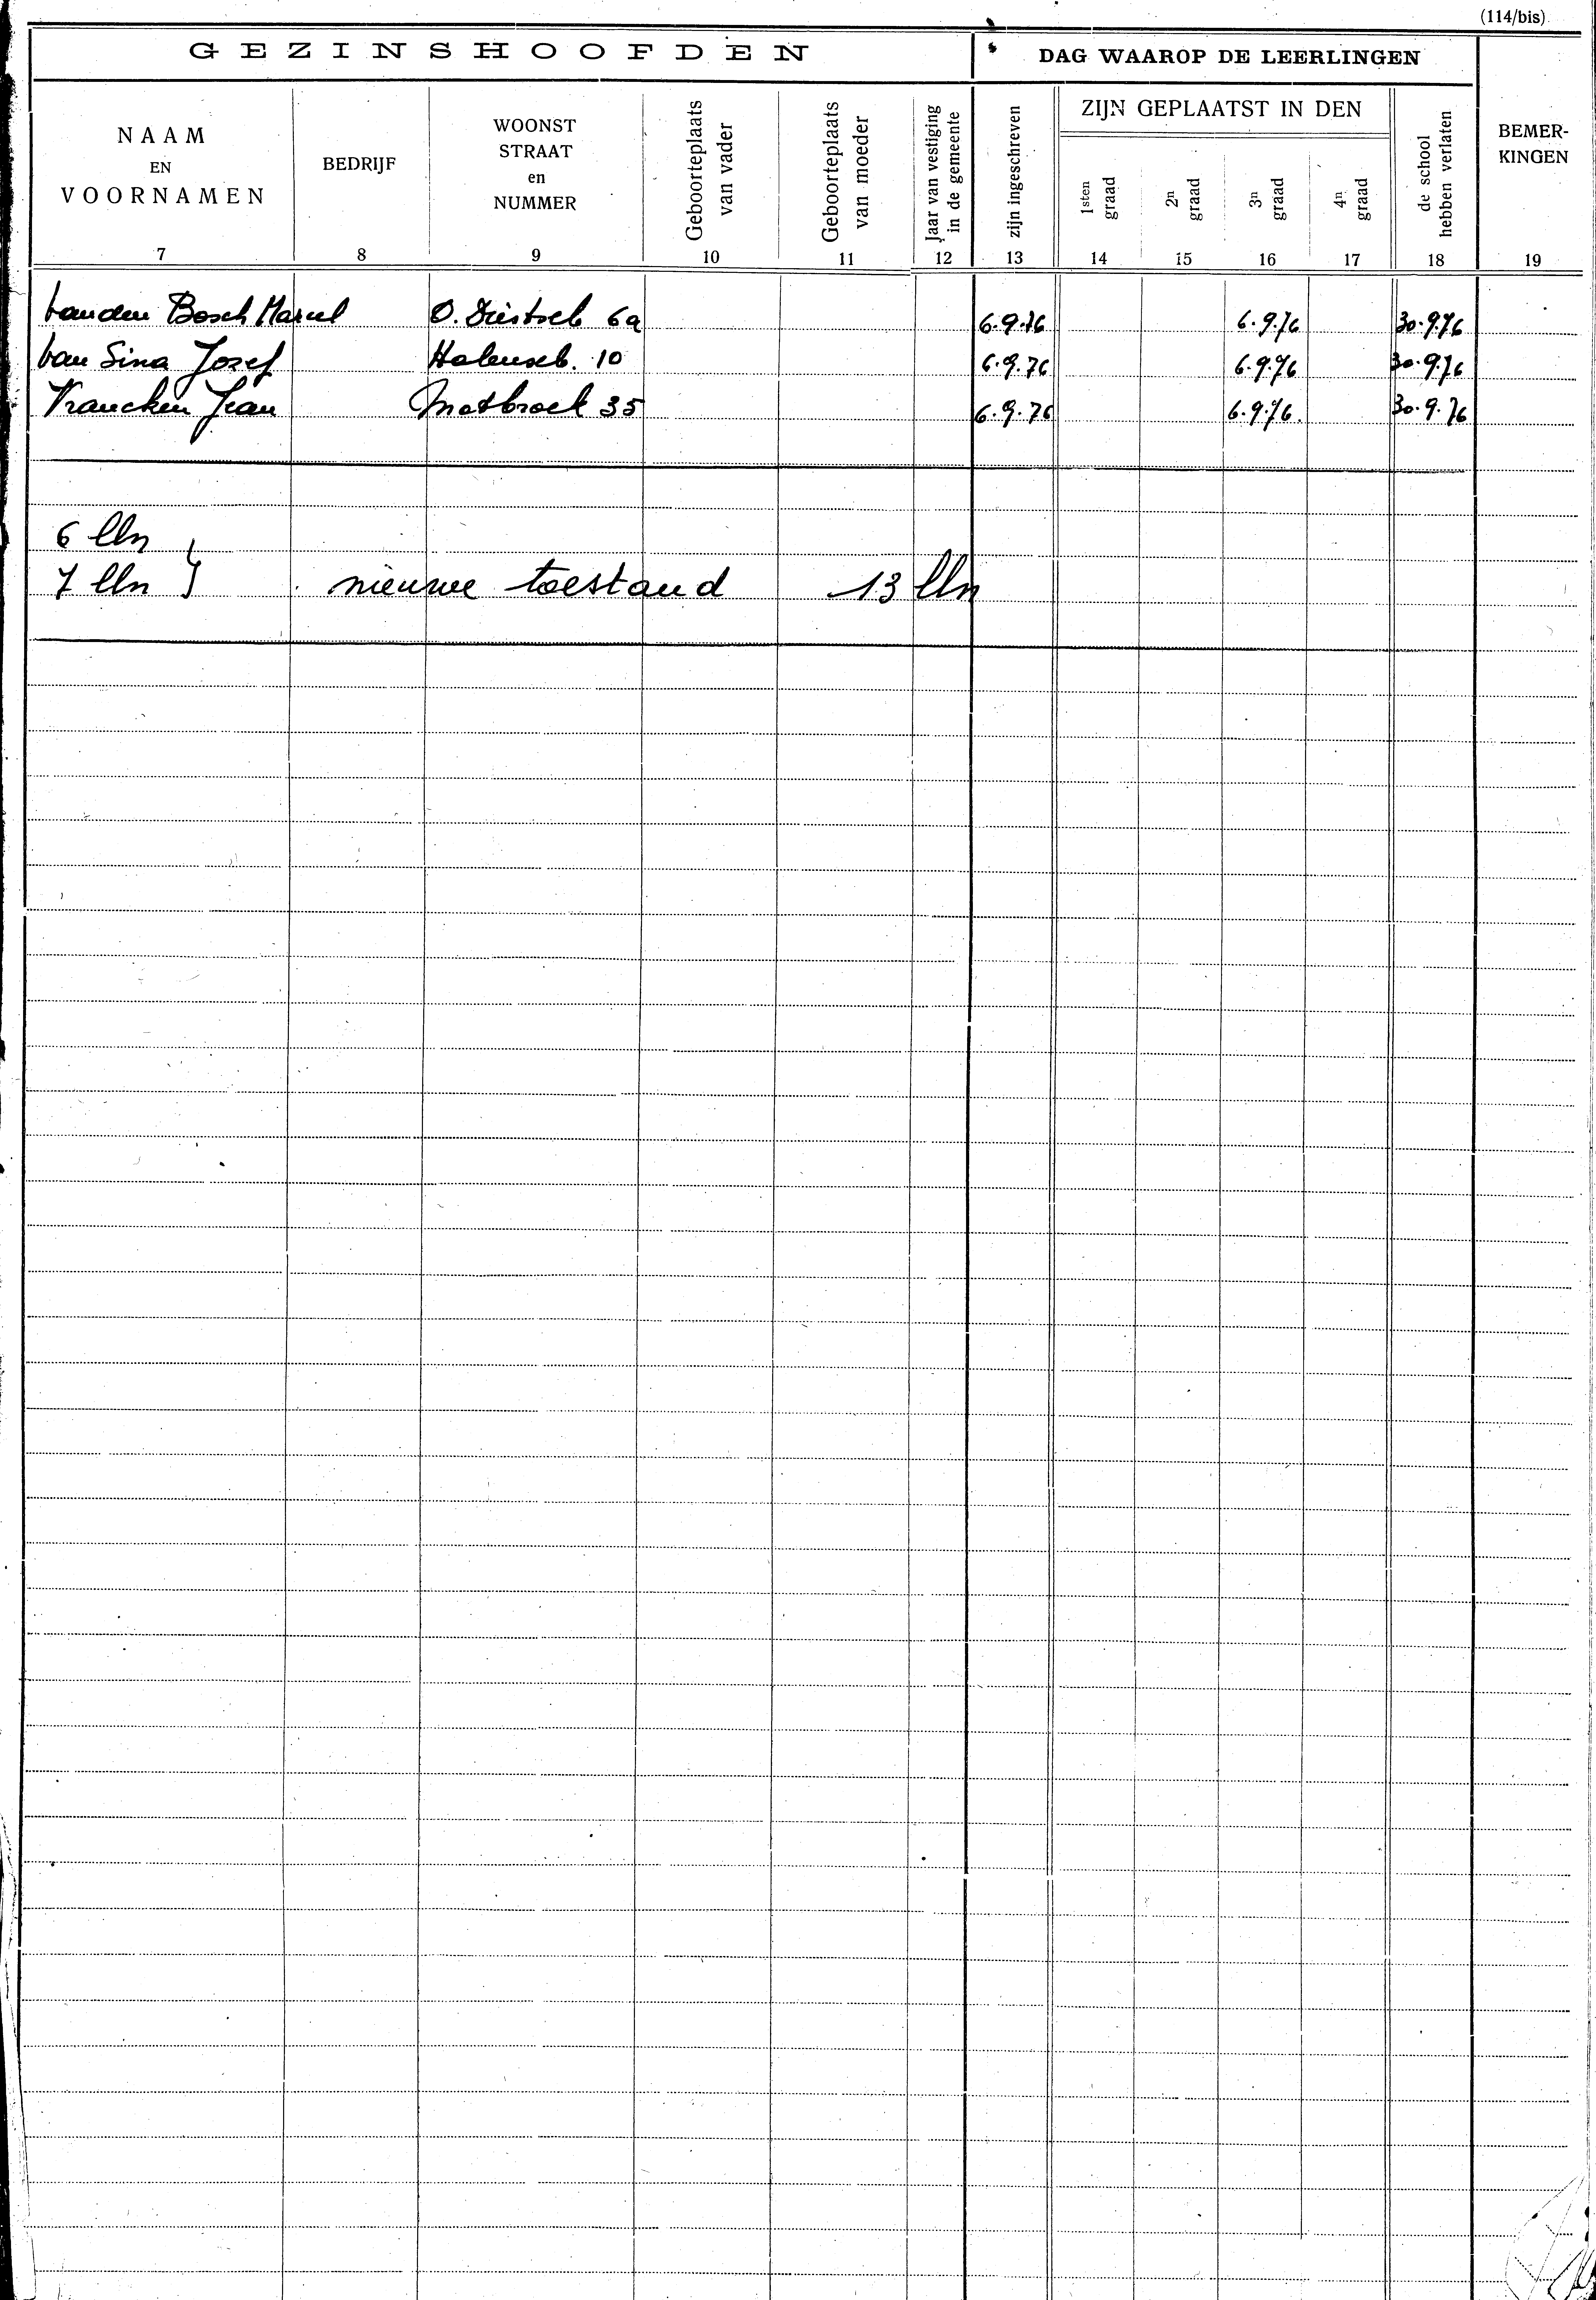 (114/bis)
GEZINSHOOFDEN
DAG WAAROP DE LEERLINGEN
NAAM
EN
VOORNAMEN
BEDRIJF
WOONST
STRAAT
en
NUMMER
Geboorteplaats
van vader
Geboorteplaats
van moeder
Jaar van vestiging
in de gemeente
zijn ingeschreven
ZIJN GEPLAATST IN DEN
1sten
graad
2n
graad
3n
graad
4n
graad
de school
hebben verlaten
BEMER-
KINGEN
7 8 9 10 11 12 13 14 15 16 17 18 19
Vanden Bosch Marcel O. 6a 6.9.76 6.9.76 30.9.76
Van Sina Jozef 10 6.9.76 6.9.76 30.9.76
Vrancken Jean 35 6.9.76 6.9.76. 30.9.76
6 lln }
7 lln } nieuwe toestand 13 lln